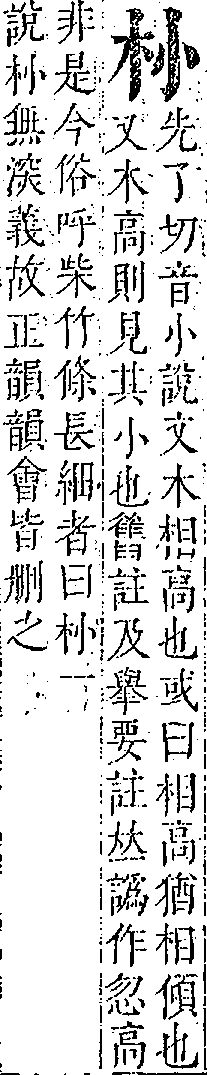 朩先了切音小說文木相高也或曰相高猶相傾也
又木高則見其小也舊註及舉要註𠀤譌作忽高
非是今俗呼柴竹條長細者曰朩一
說朩無深義故正韻韻會皆刪之